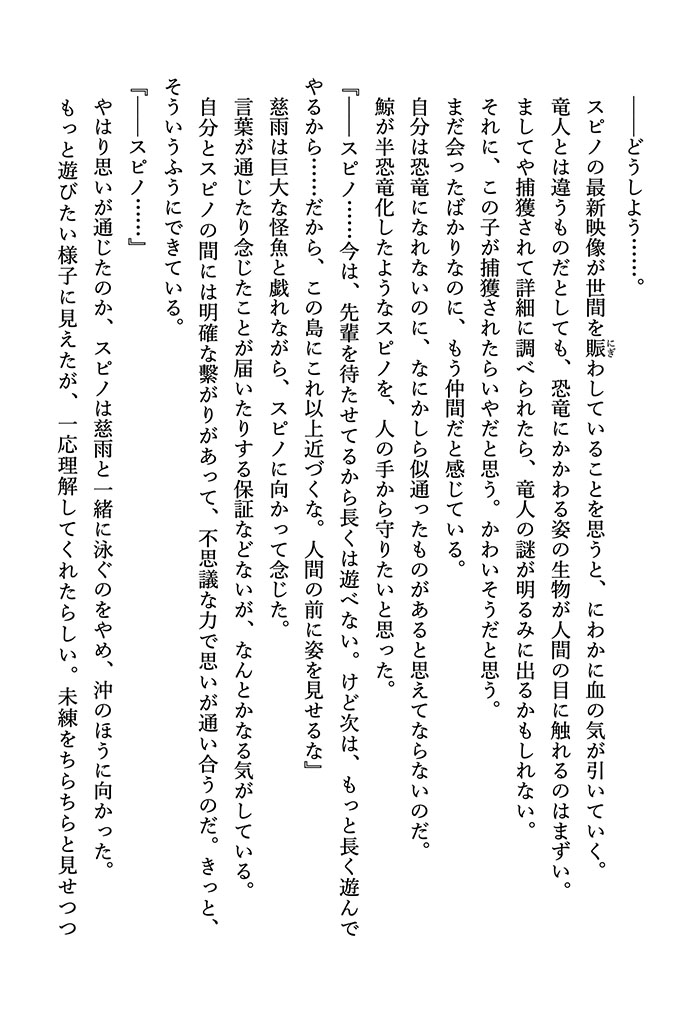 ――どうしよう……。
スピノの最新映像が世間を賑わしていることを思うと、にわかに血の気が引いていく。
竜人とは違うものだとしても、恐竜にかかわる姿の生物が人間の目に触れるのはまずい。
ましてや捕獲されて詳細に調べられたら、竜人の謎が明るみに出るかもしれない。
それに、この子が捕獲されたらいやだと思う。かわいそうだと思う。
まだ会ったばかりなのに、もう仲間だと感じている。
自分は恐竜になれないのに、なにかしら似通ったものがあると思えてならないのだ。
鯨が半恐竜化したようなスピノを、人の手から守りたいと思った。
『――スピノ……今は、先輩を待たせてるから長くは遊べない。けど次は、もっと長く遊んで
やるから……だから、この島にこれ以上近づくな。人間の前に姿を見せるな』
慈雨は巨大な怪魚と戯れながら、スピノに向かって念じた。
言葉が通じたり念じたことが届いたりする保証などないが、なんとかなる気がしている。
自分とスピノの間には明確な繋がりがあって、不思議な力で思いが通い合うのだ。きっと、
そういうふうにできている。
『――スピノ……』
やはり思いが通じたのか、スピノは慈雨と一緒に泳ぐのをやめ、沖のほうに向かった。
もっと遊びたい様子に見えたが、一応理解してくれたらしい。未練をちらちらと見せつつ